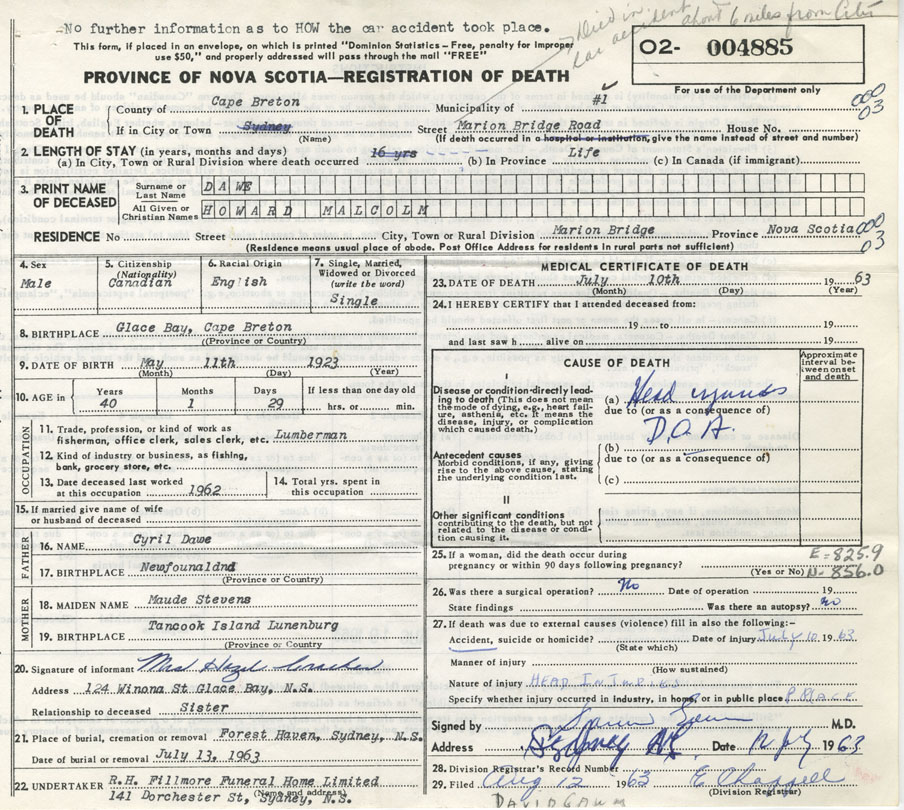 No further information as to HOW the car accident took place.
Died in
car accident about 6 miles from City
This form, if placed in an envelope, on which is printed "Dominion Statistics - Free, penalty for improper
use $50," and properly addressed will pass through the mail "FREE"
02- 004885
PROVINCE OF NOVA SCOTIA—REGISTRATION OF DEATH
For use of the Department only
1. PLACE OF DEATH
County of Cape Breton Municipality of #1
000
03
If in City or Town Sydney Street Marion Bridge Road House No.
(Name) (If death occurred in a hospital or institution, give the name instead of street and number)
2. LENGTH OF STAY (in years, months and days)
(a) In City, Town or Rural Division where death occurred 16 yrs (b) In Province Life (c) In Canada (if immigrant)
3. PRINT NAME OF DECEASED
Surname or Last Name DAWE
All Given or Christian Names HOWARD MALCOLM
RESIDENCE No Street City, Town or Rural Division Marion Bridge Province Nova Scotia
000
03
(Residence means usual place of abode. Post Office Address for residents in rural parts not sufficient)
4. Sex
Male
5. Citizenship
(Nationality)
Canadian
6. Racial Origin
English
7. Single, Married,
Widowed or Divorced
(write the word)
Single
8. BIRTHPLACE Glace Bay, Cape Breton
(Province or Country)
9. DATE OF BIRTH May 11th 1923
(Month) (Day) (Year)
10. AGE in
Years Months Days If less than one day old
40 1 29 hrs. or min.
OCCUPATION
11. Trade, profession, or kind of work as
fisherman, office clerk, sales clerk, etc. Lumberman
12. Kind of industry or business, as fishing,
bank, grocery store, etc.
13. Date deceased last worked
at this occupation 1962
14. Total yrs. spent in
this occupation
15. If married give name of wife
or husband of deceased
FATHER
16. NAME Cyril Dawe
17. BIRTHPLACE Newfounaldnd
(Province or Country)
MOTHER
18. MAIDEN NAME Maude Stevens
19. BIRTHPLACE Tancook Island Lunenburg
(Province or Country)
20. Signature of informant Mrs Hazel
Address 124 Winona St Glace Bay, N.S.
Relationship to deceased Sister
21. Place of burial, cremation or removal Forest Haven, Sydney, N.S.
Date of burial or removal July 13, 1963
22. UNDERTAKER R.H. Fillmore Funeral Home Limited
(Name and address)
141 Dorchester St, Sydney, N.S.
MEDICAL CERTIFICATE OF DEATH
23. DATE OF DEATH July 10th 1963
(Month) (Day) (Year)
24. I HEREBY CERTIFY that I attended deceased from:
19 to 19
and last saw h alive on 19
CAUSE OF DEATH
Approximate
interval be-
tween onset
and death
I
Disease or condition directly lead-
ing to death (This does not mean
the mode of dying, e.g., heart fail-
ure, asthenia, etc. It means the
disease, injury, or complication
which caused death.)
(a) Head injuries
due to (or as a consequence of)
D.O.A.
Antecedent causes
Morbid conditions, if any, giving
rise to the above cause, stating
the underlying condition last.
(b)
due to (or as a consequence of)
(c)
II
Other significant conditions
contributing to the death, but not
related to the disease or condi-
tion causing it.
25. If a woman, did the death occur during
pregnancy or within 90 days following pregnancy?
(Yes or No)
E-825.9
N-856.0
26. Was there a surgical operation? No Date of operation 19
State findings Was there an autopsy? no
27. If death was due to external causes (violence) fill in also the following:-
Accident, suicide or homicide? Date of injury July 10 1963
(State which)
Manner of injury
(How sustained)
Nature of injury HEAD INJURIES
Specify whether injury occurred in industry, in home, or in public place P PLACE
Signed by M.D.
Address Sydney NS Date 1963
28. Division Registrar's Record Number
29. Filed Aug 12 1963 E Chappell
(Division Registrar)